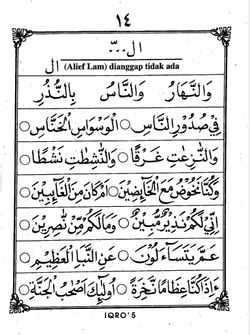 ١٤
ال...
ال (Alief Lam) dianggap tidak ada
وَالنَّهَارُ وَالنَّاسُ بِالنُّذُرِ
فِيْ صُدُوْرِ النَّاسِ ○ الْوَسْوَاسِ الْخَنَّاسِ ○
وَالنّٰزِعٰتِ غَرْقًا ○ وَالنّٰشِطٰتِ نَشْطًا ○
وَكُنَّا نَخُوْضُ مَعَ الْخَآئِضِيْنَ ○ اَمْ كَانَ مِنَ الْغَآئِبِيْنَ ○
اِنِّيْ لَكُمْ نَذِيْرٌ مُّبِيْنٌ ○ وَمَا لَكُمْ مِّنْ نّٰصِرِيْنَ ○
عَمَّ يَتَسَآءَلُوْنَ ○ عَنِ النَّبَاِ الْعَظِيْمِ ○
ءَاِذَا كُنَّا عِظَامًا نَّخِرَةً ○ اُولٰٓئِكَ اَصْحٰبُ الْجَنَّةِ ○
IQRO' 5